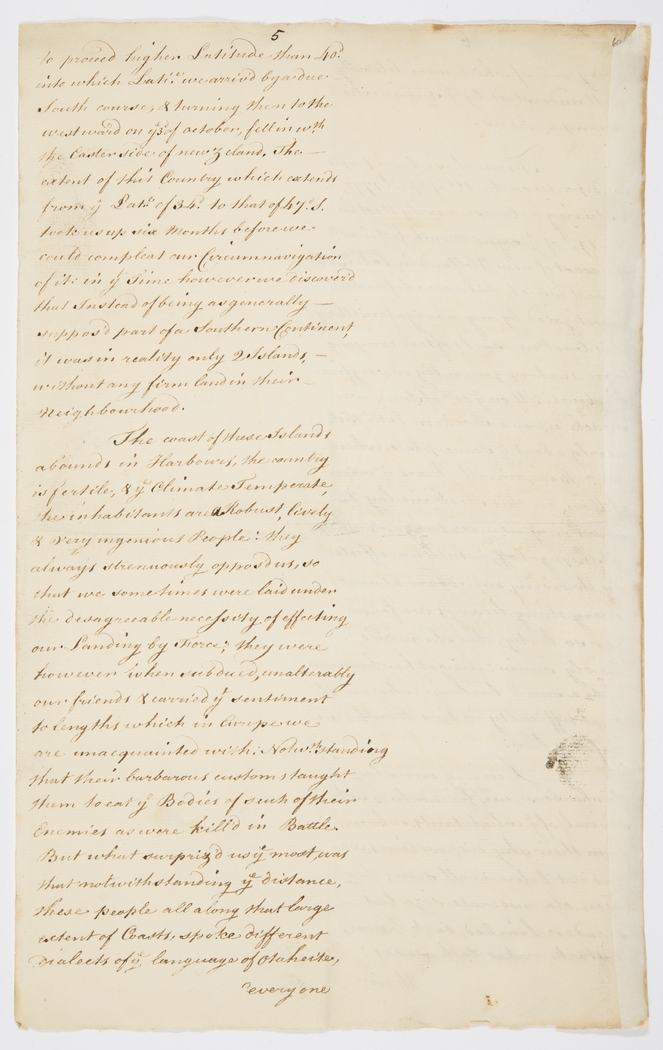 5
to proceed higher Latitude than 40.d
into which Lati.e we arriv'd by a due
South course, & turning then to the
westward on ye 3d of october, fell in wth
the Easter side of new Zeland. The —
extent of this Country which extends
from ye Lat.e of 34.d to that of 47.d S.
took us up six Months before we
could compleat our Circumnavigation
of it: in ye Time however we discover'd
that Instead of being as generally —
suppos'd part of a Southern Continent,
it was in reality only 2 Islands, —
without any firm land in their —
Neighbourhood.
The coast of these Islands
abounds in Harbours, the country
is fertile, & ye Climate Temperate,
the inhabitants are a Robust, lively
& very ingenious People: they
always strenuously oppos'd us, so
that we sometimes were laid under
the disagreeable necessity of effecting
our Landing by Force; they were
however when subdued, unalterably
our friends & carried ye sentiment
to lengths which in Europe we
are unacquainted with: Notwthstanding
that their barbarous customs taught
them to eat ye Bodies of such of their
Enemies as were kill'd in Battle.
But what surpriz'd us ye most, was
that notwithstanding ye distance,
these people all along that large
extent of Coasts, spoke different
Dialects of ye language of Otaheite,
every one